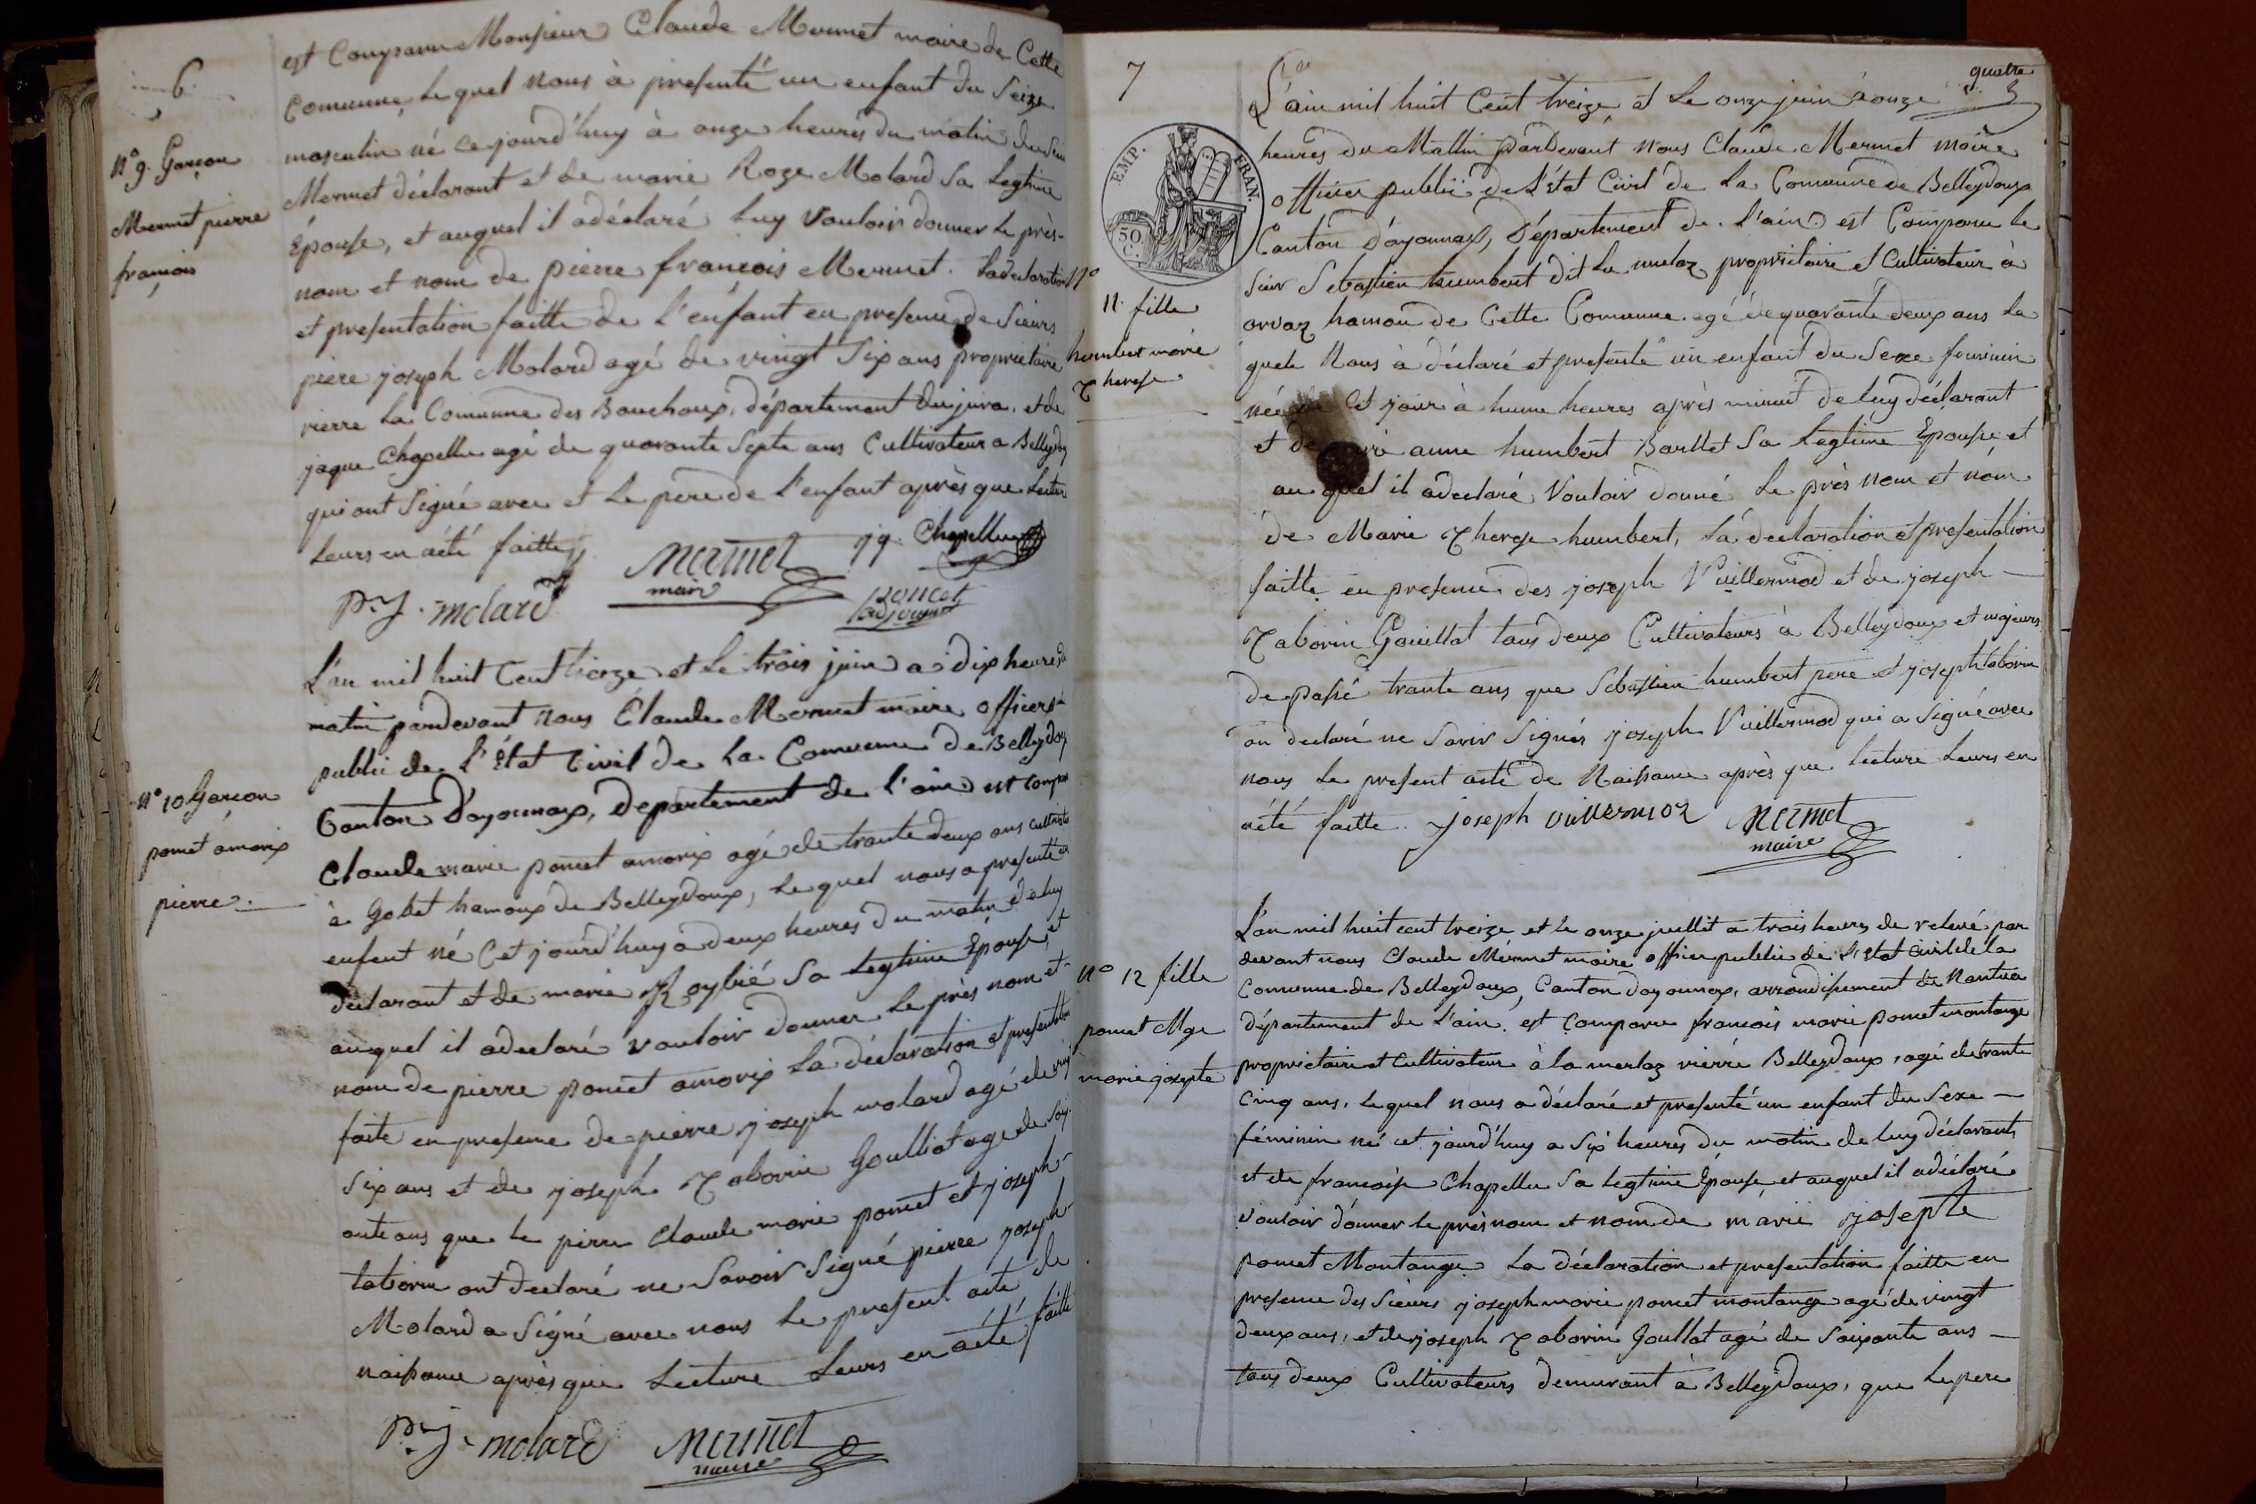 6
est Comparu Monsieur Claude Mermet maire de Cette
Comunne, Le quel nous à presenté un enfant du Seixe
masculin né ce jourd'huy à onze heures du matin de Lui
Mermet déclarant et de marie Roze Molard Sa Legtime
Épouse, et auquel il adéclaré Luy Vouloir donner Le près-
nom et nom de pierre françois Mermet. Ladeclaration
et presentation faitte de L'enfant en presence de Sieurs
piere joseph Molard agé de vingt Six ans propriétaire
rierre La Comunne des Bouchoux, département du jura, et de
jaque Chapellu agé de quarante Septe ans Cultivateur a Belleydoux
qui ont Signé avec et Le pere de l'enfant après que Lectur
Leurs en aété faitte
N° 9. Garçon
Mermet pierre
françois
Mermet
maire
jq. Chapellu
P.J. molard
poncet
adjoint
L'an mil huit Cent treize et Le trois juin a dix heures du
matin pardevant nous Claude Mermet maire officier
public de L'état Civil de La Comunne de Belleydoux
Canton d'ayonnax, Département de l'ain est Comparu
Claude marie poncet amorix agé de trante deux ans Cultivateur
à Gobet hamoux de Belleydoux, Le quel nous a presenté un
enfent né Cet jourd'huy a deux heures du matin de luy
déclarant et de marie Roybié Sa Legtime Épouse, et
auquel il adeclaré vouloir donner Le près nom et
nom de pierre poncet amorix La déclaration et presentation
faite en presence de pierre joseph molard agé de vingt
Six ans et de joseph Taborin Goulliot agé de Soix-
ante ans que le pirre Claude marie poncet et joseph
taborin ont declaré ne Savoir Signé pierre joseph
Molard a Signé avec nous Le present acte de
naissance après que Lecture Leurs en aété faitte
N° 10 Garcon
poncet amorix
pierre.
P.J. molard
Mermet
maire
7
quatre
L'ain mil huit Cent treize et Le onze juin à onze
heures du Mattin pardevant nous Claude Mermet maire
officier public de L'état Civil de La Comunne de Belleydoux
Canton d'ayonnax, Département de l'ain est Comparu le
Sieur Sebastien humbert dit La mulaz propriétaire et Cultivateur à
orvaz hamou de Cette Comunne agé de quarante deux ans Le
quele Nous à déclaré et presenté un enfant du Sexe feminin
née Cet jour à hune heures après minuit de Luy déclarant
et de anne humbert Barllet Sa Legtime Épouse et
au quel il adeclaré Vouloir donné Le près nom et nom
de Marie Therese humbert, La declaration et presentation
faitte en presence des joseph Vuillermod et de joseph
Taborin Gouillat tous deux Cultivateurs à Belleydoux et majeurs
de passé trante ans que Sebastien humbert pere et joseph taborin
on declaré ne Savoir Signés joseph Vuillermod qui a Signé avec
nous Le present acte de Naissance après que Lecture Leurs en
aété faitte.
EMP. FRAN.
50
C.
N°
11. fille
humbert marie
Therese
joseph vuillermoz
Mermet
maire
L'an mil huit cent treize et le onze juillit a trois heures de relevé par
devant nous Claude Mermet maire officier public de L'état Civil de la
Comunne de Belleydoux, Canton doyonnax, arrondissement de Nantua
département de L'ain. est Comparu francois marie poncet montange
proprietaire et Cultivateur à la merlaz rierre Belleydoux, agé de trante
Cinq ans, Le quel nous a déclaré et presenté un enfant du Sexe
féminin né cet jourd'huy a Six heures du matin de luy déclarant
et de francoise Chapellu Sa Legtime Épouse, et auquel il adéclaré
Vouloir donner Le près nom et nom de marie josepte
poncet Montange. La déclaration et presentation faitte en
presence des Sieurs joseph marie poncet montange agé de vingt
deux ans, et de joseph Taborin Goullat agé de Soixante ans
tous deux Cultivateurs demurant à Belleydoux, que Le pere
N° 12 fille
poncet Mge
marie josepte